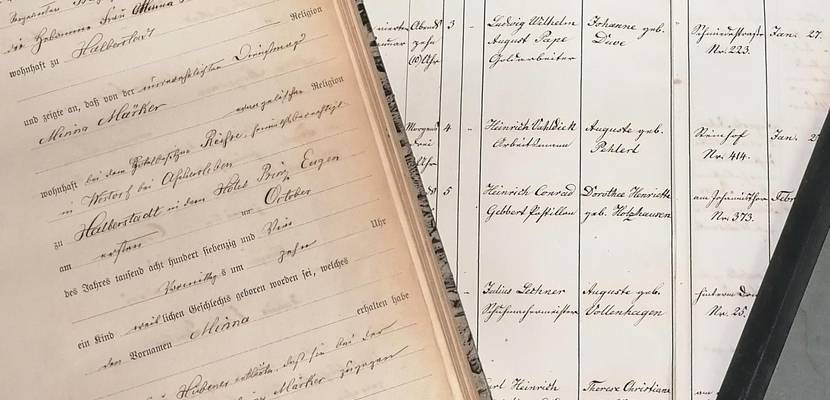 die Hebamme Frau Minna
wohnhaft zu Halberstadt Religion
und zeigte an, daß von der unverehelichten Dienstmagd
Minna Märker
evangelischer Religion
wohnhaft bei dem
in Westorf bei Aschersleben
zu Halberstadt in dem Hotel Prinz Eugen
am ersten October
des Jahres tausend acht hundert siebenzig und Vier
Vormittags um zehn Uhr
ein Kind weiblichen Geschlechts geboren worden sei, welches
den Vornamen Minna erhalten habe
Hübener erklärte, daß sie bei der
Märker zugegen
Abends 3 Ludwig Wilhelm Johanne geb. Schmiedestraße Jan. 27.
zehn August Pape Duve Nr. 223.
(10) Uhr Goldarbeiter
Morgens 4 Heinrich Vahldiek Auguste geb. Steinhof Jan.
drei Arbeitsmann Pehlert Nr. 414.
Uhr
5 Heinrich Conrad Dorothee Henriette am Johannisthor Febr
Gebbert Postillon geb. Holzhausen Nr. 373.
Julius Lechner Auguste geb. hinterm Dom
Schuhmachermeister Vollenhagen Nr. 25.
Carl Heinrich Therese Christiane am